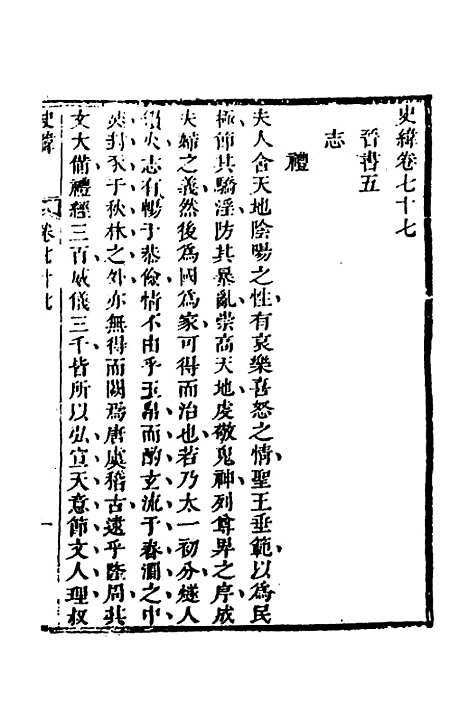 史緯卷七十七
晉書五
志
禮
夫人含天地陰陽之性有哀樂喜怒之情聖王垂範以為民
極節其驕淫防其暴亂崇高天地虔敬鬼神列尊卑之序成
夫婦之義然後為國為家可得而治也若乃太一初分燧人
鑽火志有暢于恭儉情不由乎玉帛而酌玄流于春澗之中
焚封豕于秋林之外亦無得而闕焉唐虞稽古遠乎隆周其
文大備禮經三百威儀三千皆所以弘宣天意節文人理叔
史緯
卷七十七
一